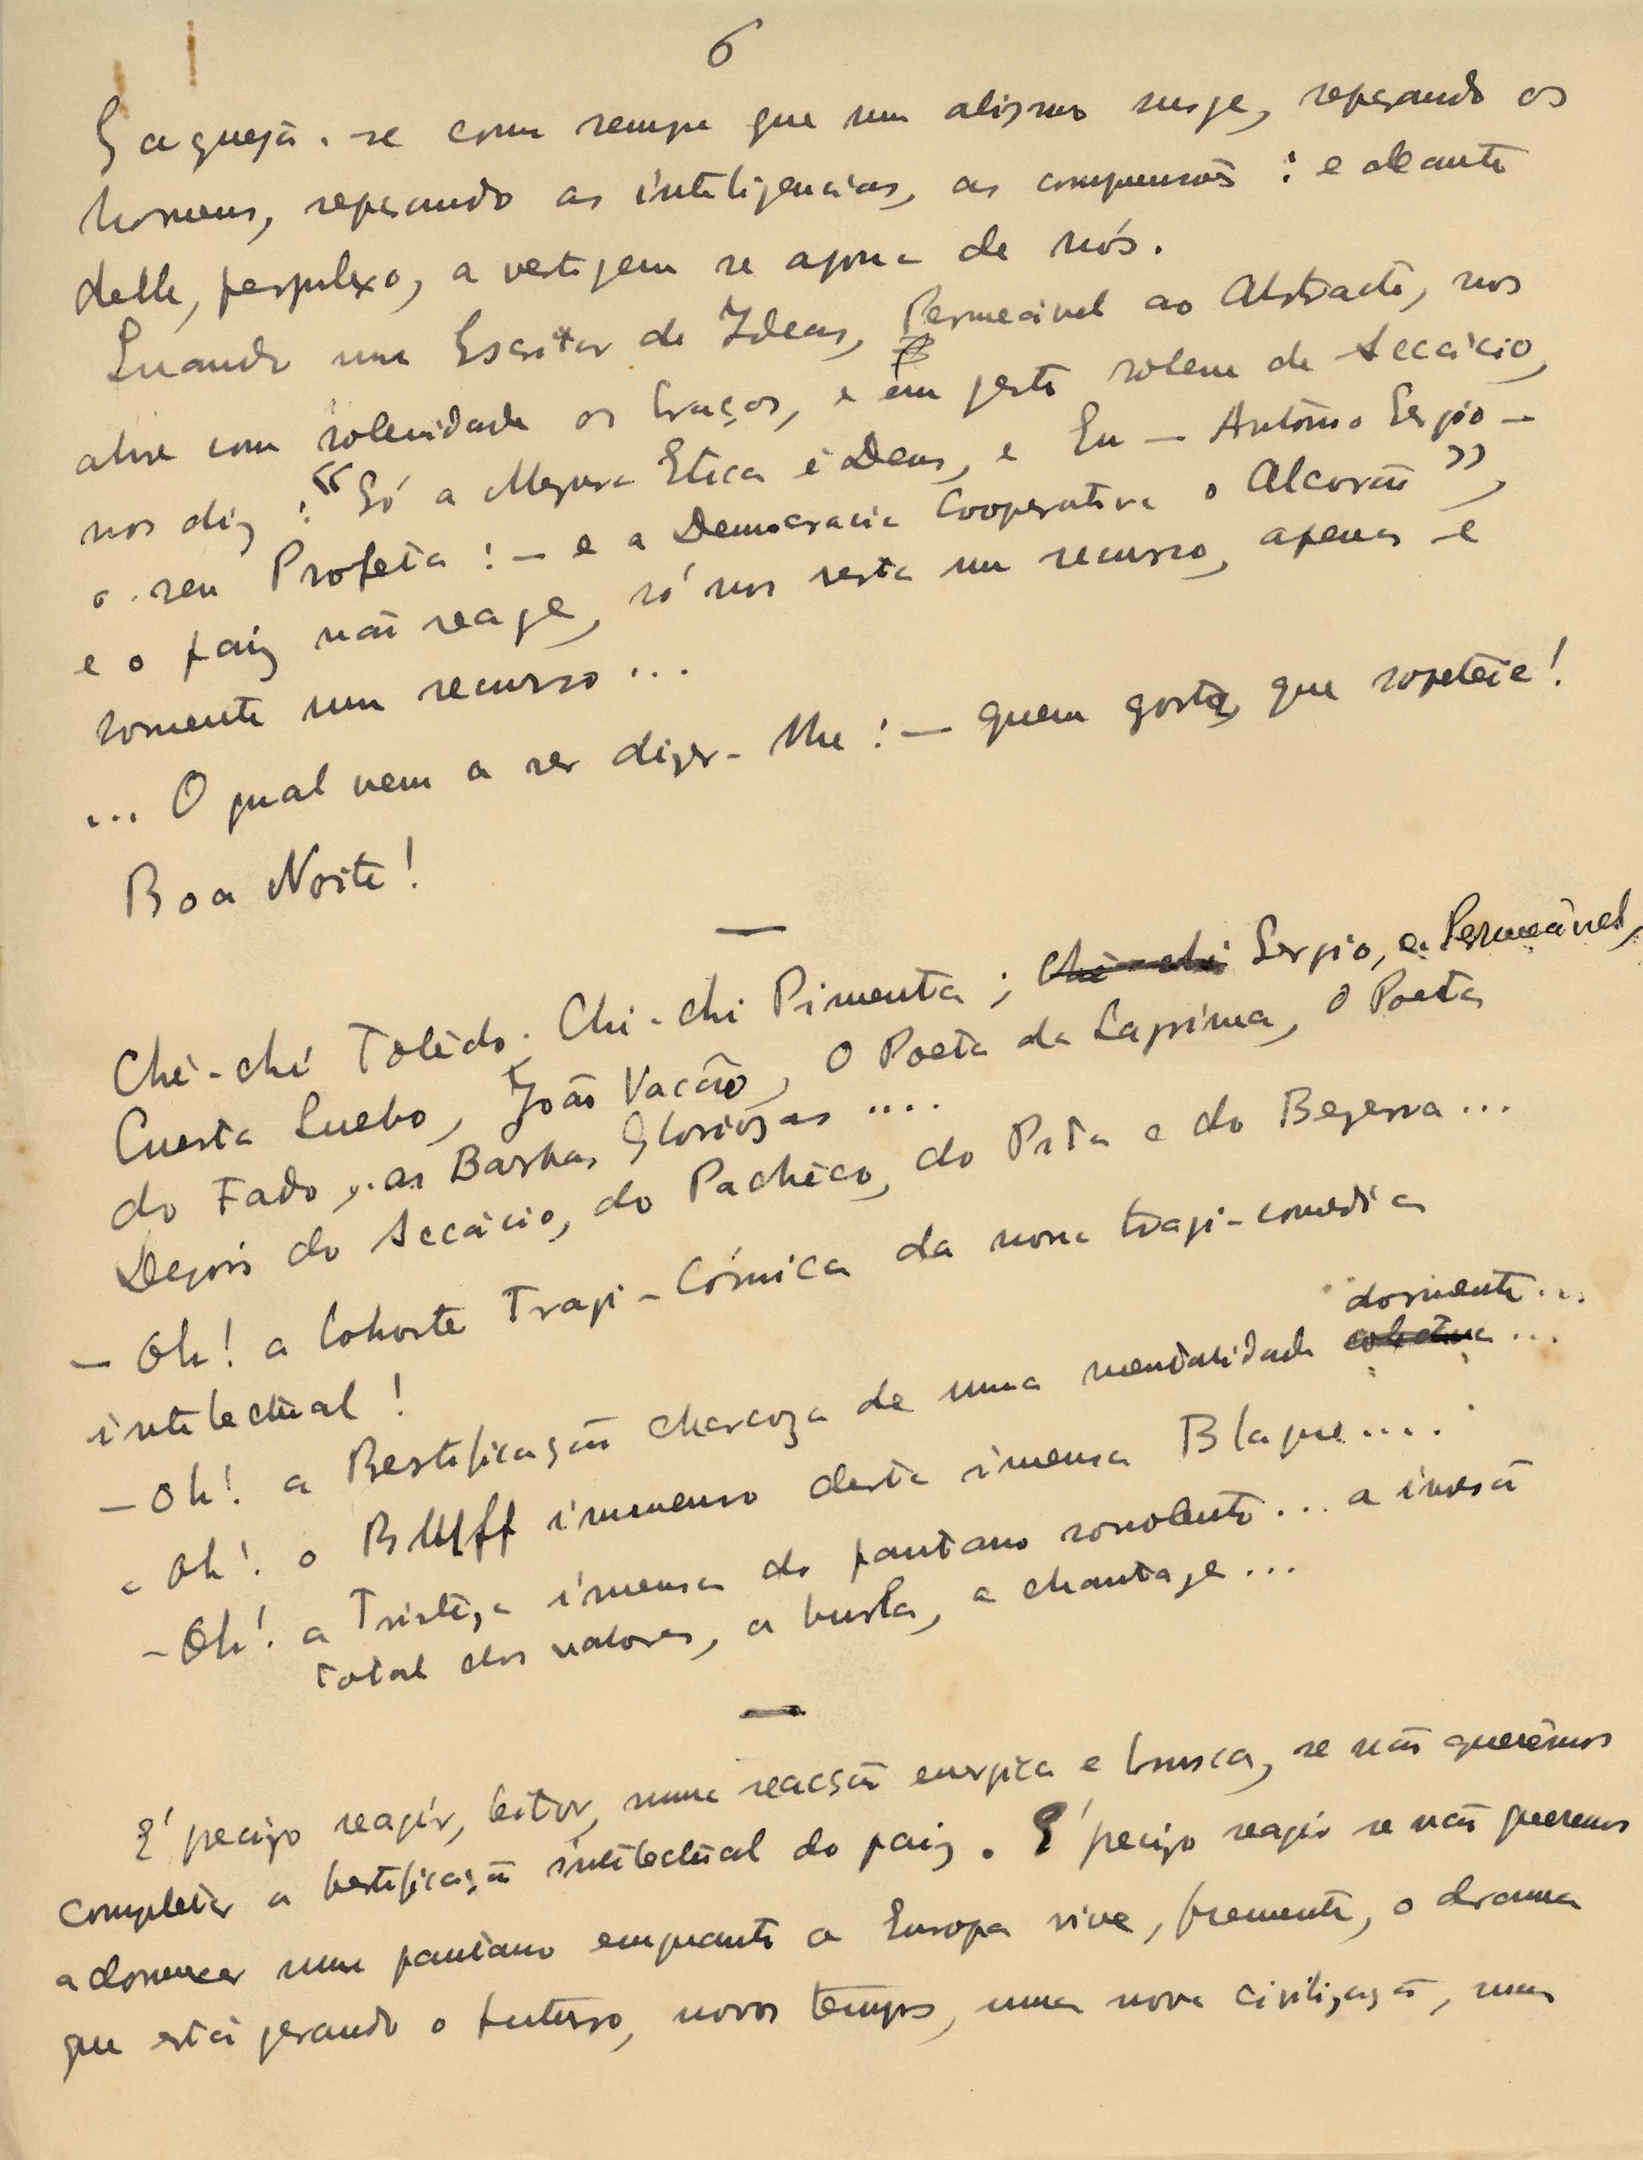 6
Gagueja-se como sempre que um abismo surge, separando os
homens, separando as inteligencias, as compreensões: e deante
delle, perplexo, a vertigem se apossa de nós.
Quando um Escritor de Ideas, Permeável ao Abstracto, nos
abre com solenidade os braços, e em gesto solene de Accácio,
nos diz: "Só a Mesura Etica é Deus, e Eu — António Sergio —
o seu Profeta! — e a Democracia Cooperativa o Alcorão",
e o paiz não reage, só nos resta um recurso, apenas e
somente um recurso...
... O qual vem a ser dizer-lhe: — quem gosta, que sopeteie!
Boa Noite!
Ché-ché Tolêdo; Chi-chi Pimenta; Ché-ché Sergio, o Permeável,
Cuesta Luebo, João Vacão, O Poeta da Lagrima, O Poeta
do Fado, as Barbas Gloriozas....
Depois do Accácio, do Pachêco, do Pita e do Bezerra...
— Oh! a Cohorte Tragi-Cómica da nossa tragi-comedia
intelectual!
— Oh! a Bestificação charcoza de uma mentalidade dormente...
— Oh! o Bluff immenso desta imensa Blague....
— Oh! a Tristêza imensa do pantano sonolento... a inversão
total dos valores, a burla, a chantage...
É precizo reagir, leitor, numa reacção energica e brusca, se não querêmos
completar a bestificação intelectual do paiz. É precizo reagir se não queremos
adormecer num pantano emquanto a Europa vive, fremente, o drama
que está gerando o futuro, novos tempos, uma nova civilização, uma